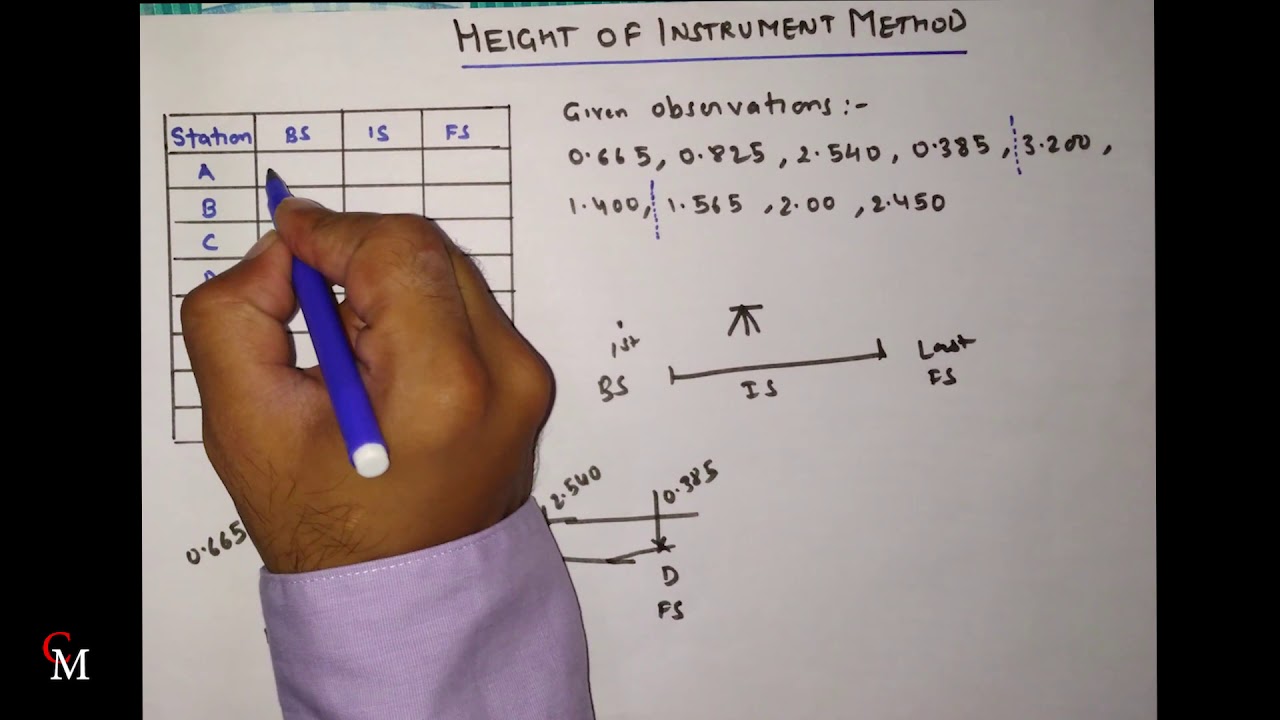 HEIGHT OF INSTRUMENT METHOD
Station BS IS FS
A
B
C
Given observations:-
0.665, 0.825, 2.540, 0.385, 3.200,
1.400, 1.565, 2.00, 2.450
Ist
BS
IS
Last
FS
0.665
2.540
0.385
D
FS
CM